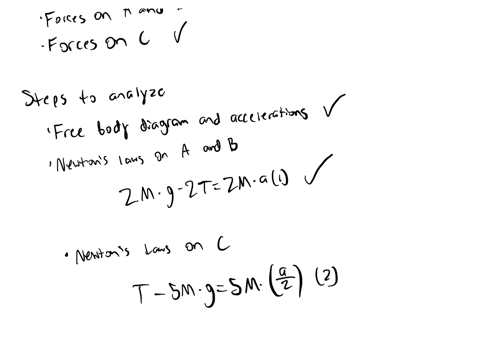 · Forces on A and
· Forces on C ✓
Steps to analyze
· Free body diagram and accelerations ✓
· Newton's laws on A and B
2M·g-2T=2M·a(1) ✓
· Newton's Laws on C
T-5M·g=5M·(a/2) (2)